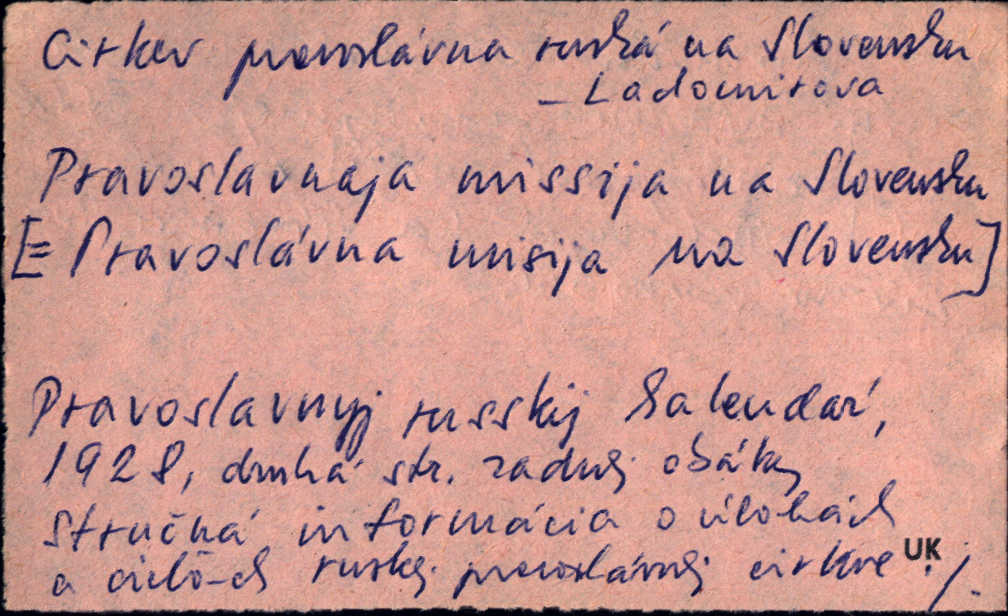 Cirkev pravoslávna ruská na Slovensku
– Ladomirova
Pravoslavnaja missija na Slovensku
[= Pravoslávna misija na Slovensku]
Pravoslavnyj russkij kalendar',
1928, druhá str. zadnej obálky
Stručná informácia o úlohách
a cieľoch ruskej pravoslávnej cirkve
UK ./.